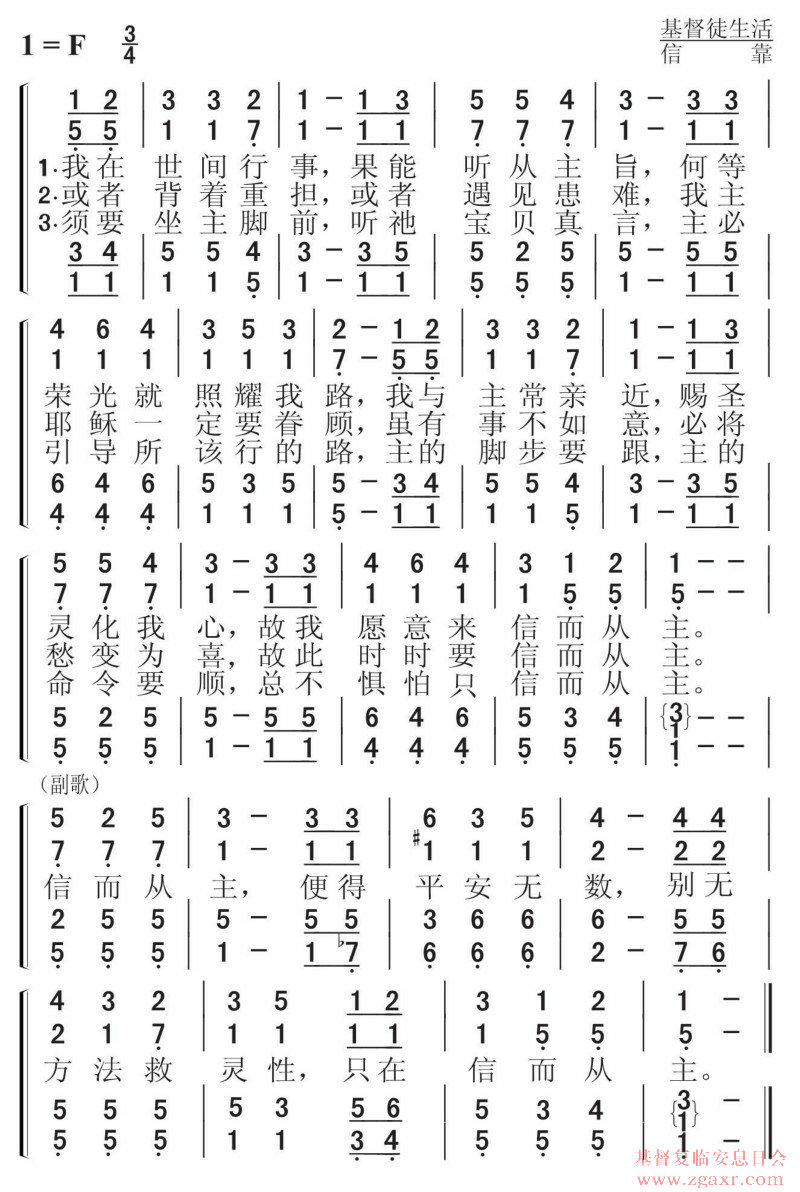 1 = F 3/4
基督徒生活
信 靠
1 2 | 3 3 2 | 1 – 1 3 | 5 5 4 | 3 – 3 3
5̣ 5̣ | 1 1 7̣ | 1 – 1 1 | 7̣ 7̣ 7̣ | 1 – 1 1
1.我在 世间行 事，果能 听从主 旨，何等
2.或者 背着重 担，或者 遇见患 难，我主
3.须要 坐主脚 前，听祂 宝贝真 言，主必
3 4 | 5 5 4 | 3 – 3 5 | 5 2 5 | 5 – 5 5
1 1 | 1 1 5̣ | 1 – 1 1 | 5̣ 5̣ 5̣ | 1 – 1 1
4 6 4 | 3 5 3 | 2 – 1 2 | 3 3 2 | 1 – 1 3
1 1 1 | 1 1 1 | 7̣ – 5̣ 5̣ | 1 1 7̣ | 1 – 1 1
荣光就 照耀我 路，我与 主常亲 近，赐圣
耶稣一 定要眷 顾，虽有 事不如 意，必将
引导所 该行的 路，主的 脚步要 跟，主的
6 4 6 | 5 3 5 | 5 – 3 4 | 5 5 4 | 3 – 3 5
4̣ 4̣ 4̣ | 1 1 1 | 5̣ – 1 1 | 1 1 5̣ | 1 – 1 1
5 5 4 | 3 – 3 3 | 4 6 4 | 3 1 2 | 1 – –
7̣ 7̣ 7̣ | 1 – 1 1 | 1 1 1 | 1 5̣ 5̣ | 5̣ – –
灵化我 心，故我 愿意来 信而从 主。
愁变为 喜，故此 时时要 信而从 主。
命令要 顺，总不 惧怕只 信而从 主。
5 2 5 | 5 – 5 5 | 6 4 6 | 5 3 4 | {3 1} – –
5̣ 5̣ 5̣ | 1 – 1 1 | 4̣ 4̣ 4̣ | 5̣ 5̣ 5̣ | 1̣ – –
（副歌）
5 2 5 | 3 – 3 3 | 6 3 5 | 4 – 4 4
7̣ 7̣ 7̣ | 1 – 1 1 | #1 1 1 | 2 – 2 2
信而从 主，便得 平安无 数，别无
2 5 5 | 5 – 5 5 | 3 6 6 | 6 – 5 5
5̣ 5̣ 5̣ | 1 – 1 ♭7̣ | 6̣ 6̣ 6̣ | 2 – 7̣ 6̣
4 3 2 | 3 5 1 2 | 3 1 2 | 1 – ‖
2 1 7̣ | 1 1 1 1 | 1 5̣ 5̣ | 5̣ – ‖
方法救 灵性，只在 信而从 主。
5 5 5 | 5 3 5 6 | 5 3 4 | {3 1} – ‖
5̣ 5̣ 5̣ | 1 1 3̣ 4̣ | 5̣ 5̣ 5̣ | 1̣ – ‖
基督复临安息日会
www.zgaxr.com